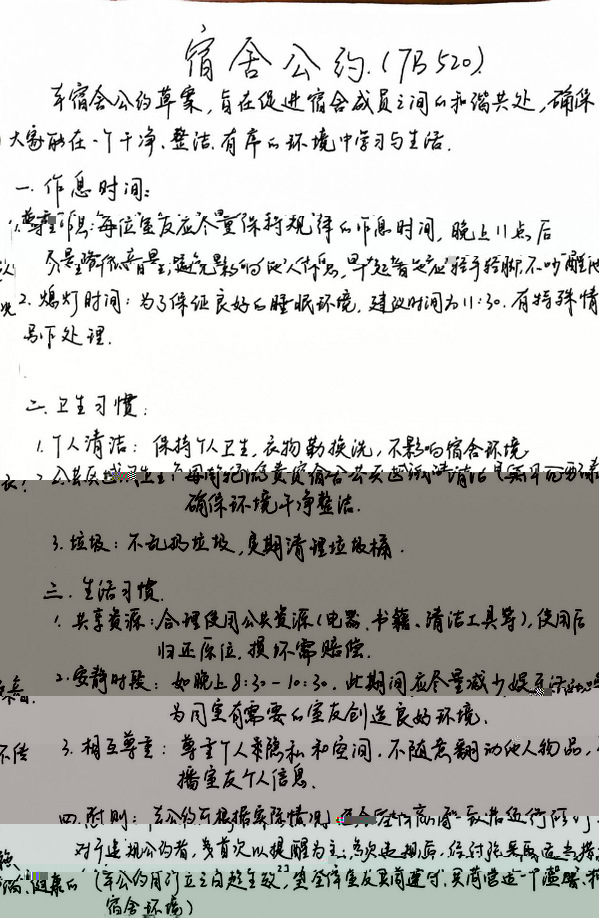 宿舍公约.(7B520).
本宿舍公约草案,旨在促进宿舍成员之间的和谐共处,确保
大家能在一个干净、整洁、有序的环境中学习与生活.
一.作息时间:
1.尊重作息:每位室友应尽量保持规律的作息时间,晚上11点后
尽量降低音量,避免影响他人休息,早起者应轻手轻脚,不吵醒他
2.熄灯时间:为了保证良好的睡眠环境,建议时间为11:30.有特殊情
况
另下处理.
二.卫生习惯:
1.个人清洁:保持个人卫生,衣物勤换洗,不影响宿舍环境
2.公共区域卫生:每周轮流负责宿舍公共区域的清洁
确保环境干净整洁.
3.垃圾:不乱扔垃圾,定期清理垃圾桶.
三.生活习惯.
1.共享资源:合理使用公共资源(电器、书籍、清洁工具等),使用后
归还原位,损坏需赔偿.
2.安静时段:如晚上8:30-10:30.此期间应尽量减少娱乐活动
为同室有需要的室友创造良好环境.
3.相互尊重:尊重个人隐私和空间,不随意翻动他人物品,不传
播室友个人信息.
四.附则:本公约可根据实际情况
对于违规公约者,首次以提醒为主,
(本公约自订立之日起生效,望全体室友共同遵守,共同营造一个温馨、
宿舍环境)